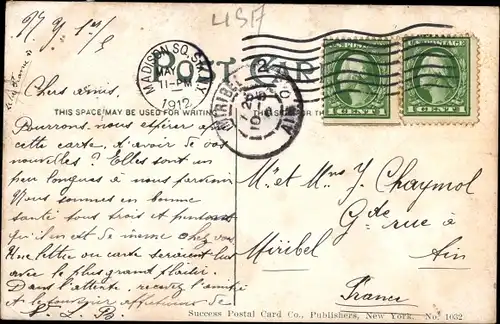 4SA
POST CARD
MADISON SQ. STA. N.Y.
MAY
11-PM
1912
2
MIRIBEL
AIN
U.S. POSTAGE
1 CENT 1
U.S. POSTAGE
1 CENT 1
THIS SPACE MAY BE USED FOR WRITING
Chers amis.
Pourrons nous espérer après
cette carte. d'avoir de vos
nouvelles? Elles sont un
peu longues à nous parvenir
Nous sommes en bonne
santé tous trois et
qu'il en est de même chez vous
Une lettre ou carte seraient lus
avec le plus grand plaisir.
Dans l'attente, recevez l'amitié
et le souvenir affectueux de
Mr et Mme J. Chaymol
Gde rue à
Miribel
Ain
France
Success Postal Card Co., Publishers, New York. No. 1032